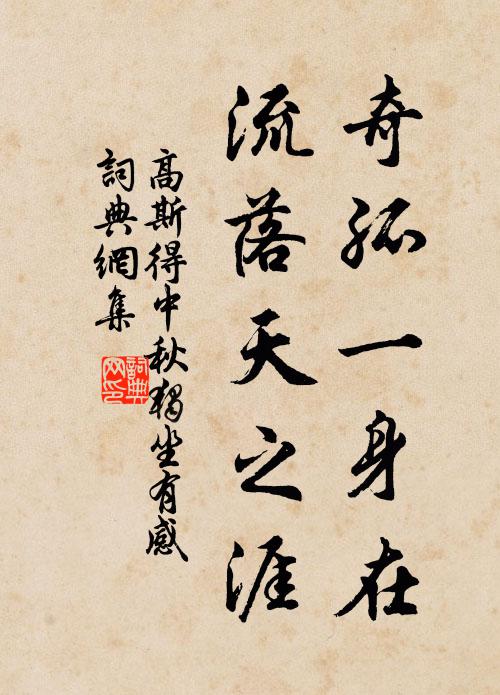 奇孤一身在
流落天之涯
高斯得中秋獨坐有感
詞典網集
詞典網印